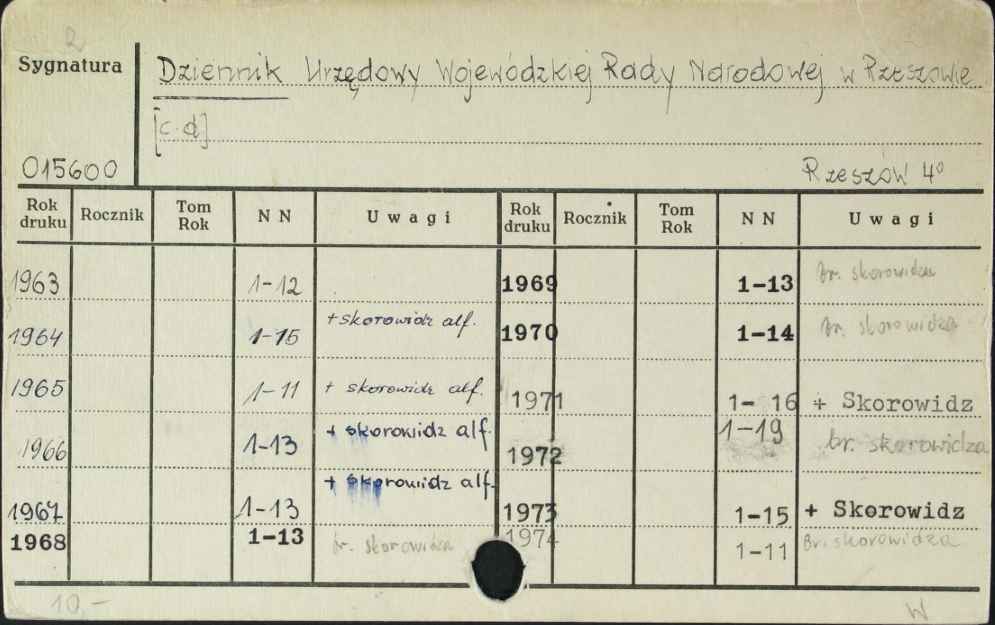 2
Sygnatura
Dziennik Urzędowy Wojewódzkiej Rady Narodowej w Rzeszowie
[c.d]
015600
Rzeszów 4°
Rok druku Rocznik Tom Rok N N Uwagi Rok druku Rocznik Tom Rok N N Uwagi
1963 1-12 1969 1-13 br. skorowidza
1964 1-15 + skorowidz alf. 1970 1-14 br. skorowidza
1965 1-11 + skorowidz alf. 1971 1- 16 + Skorowidz
1966 1-13 + skorowidz alf. 1972 1-19 br. skorowidza
1967 1-13 + skorowidz alf. 1973 1-15 + Skorowidz
1968 1-13 br. skorowidza 1974 1-11 Br. skorowidza
10,- W